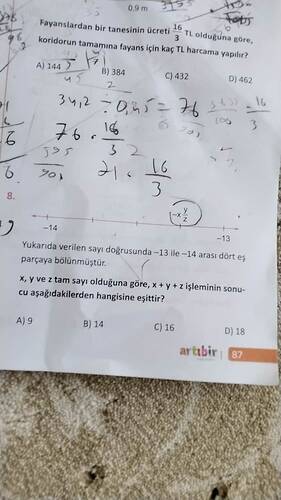 0,9 m
Fayanslardan bir tanesinin ücreti 16/3 TL olduğuna göre,
koridorun tamamına fayans için kaç TL harcama yapılır?
A) 144 B) 384 C) 432 D) 462
34,2 ÷ 0,45 = 76
76 · 16/3
71 · 16/3
8.
-x y/z
-14 -13
Yukarıda verilen sayı doğrusunda -13 ile -14 arası dört eş
parçaya bölünmüştür.
x, y ve z tam sayı olduğuna göre, x + y + z işleminin sonu-
cu aşağıdakilerden hangisine eşittir?
A) 9 B) 14 C) 16 D) 18
artıbir 87